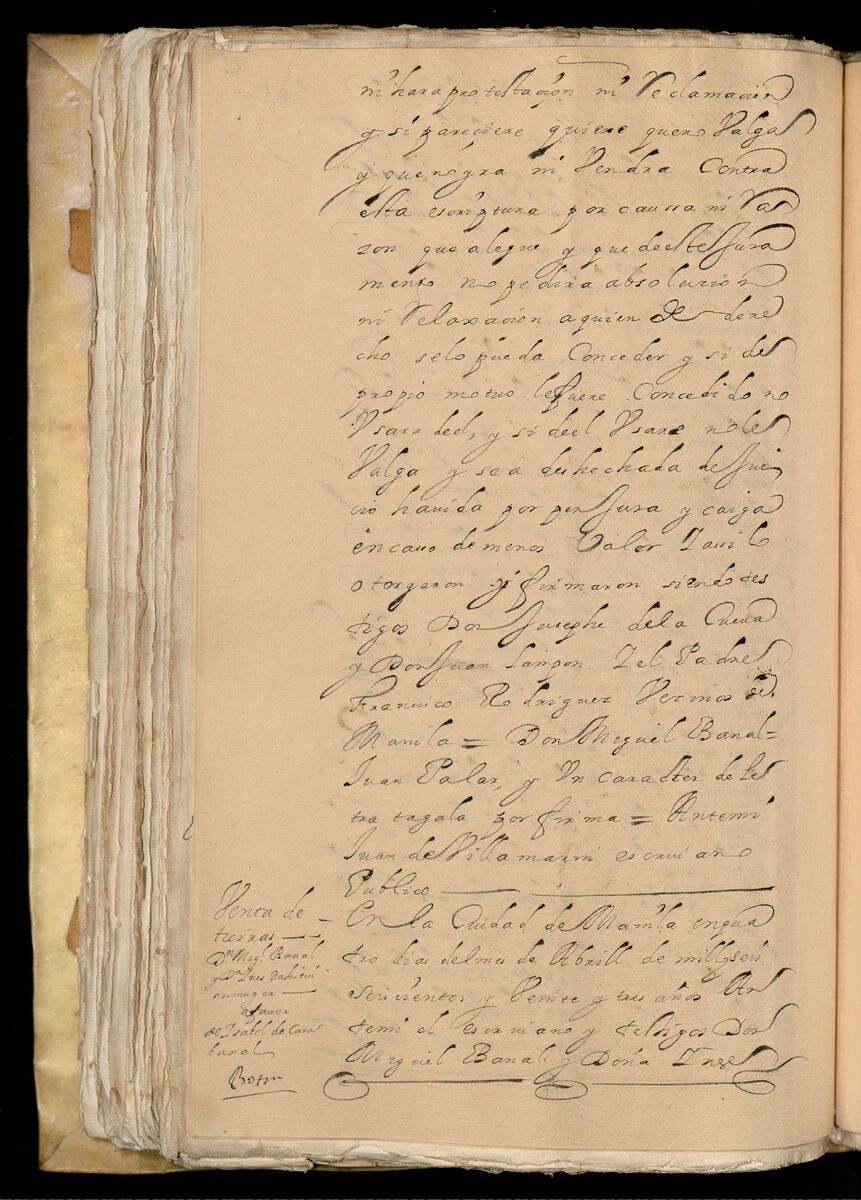 ni hara protestaçion ni Reclamacion
y si pareciere quiere que no Valga
y que no yra ni Vendra Contra
esta escriptura por caussa ni Ra
zon que alegue y que deeste Jura
mento no pedira absolucion
ni Relaxacion a quien de dere
cho selo pueda Conceder y si de
propio motuo le fuere Concedido no
Vsara deel, y si deel Vsare no le
Valga y sea deshechada de Jui
cio hauida por perJura y caiga
en caso de menos Valor Y assi lo
otorgaron y firmaron siendo tes
tigos Don Jusephe dela Cueua
y Don Juan Y el Padre
Francisco Rodriguez Vecinos de
Manila = Don Miguel Banal =
Juan Palar, y Vn caracter de le
tra tagala por firma = Antemi
Juan de Villamarin escriuano
Publico
Venta de
tierras
Dn Migl Banal
y Da Ines dahitin
su muger
a fauor
de Ysabel de Caras
baxal
En la Ciudad de Manila en qua
tro dias del mes de Abrill de mill y seis
scicientos y Veinte y tres años An
temi el escriuano y testigos Don
Miguel Banal y Doña Ines